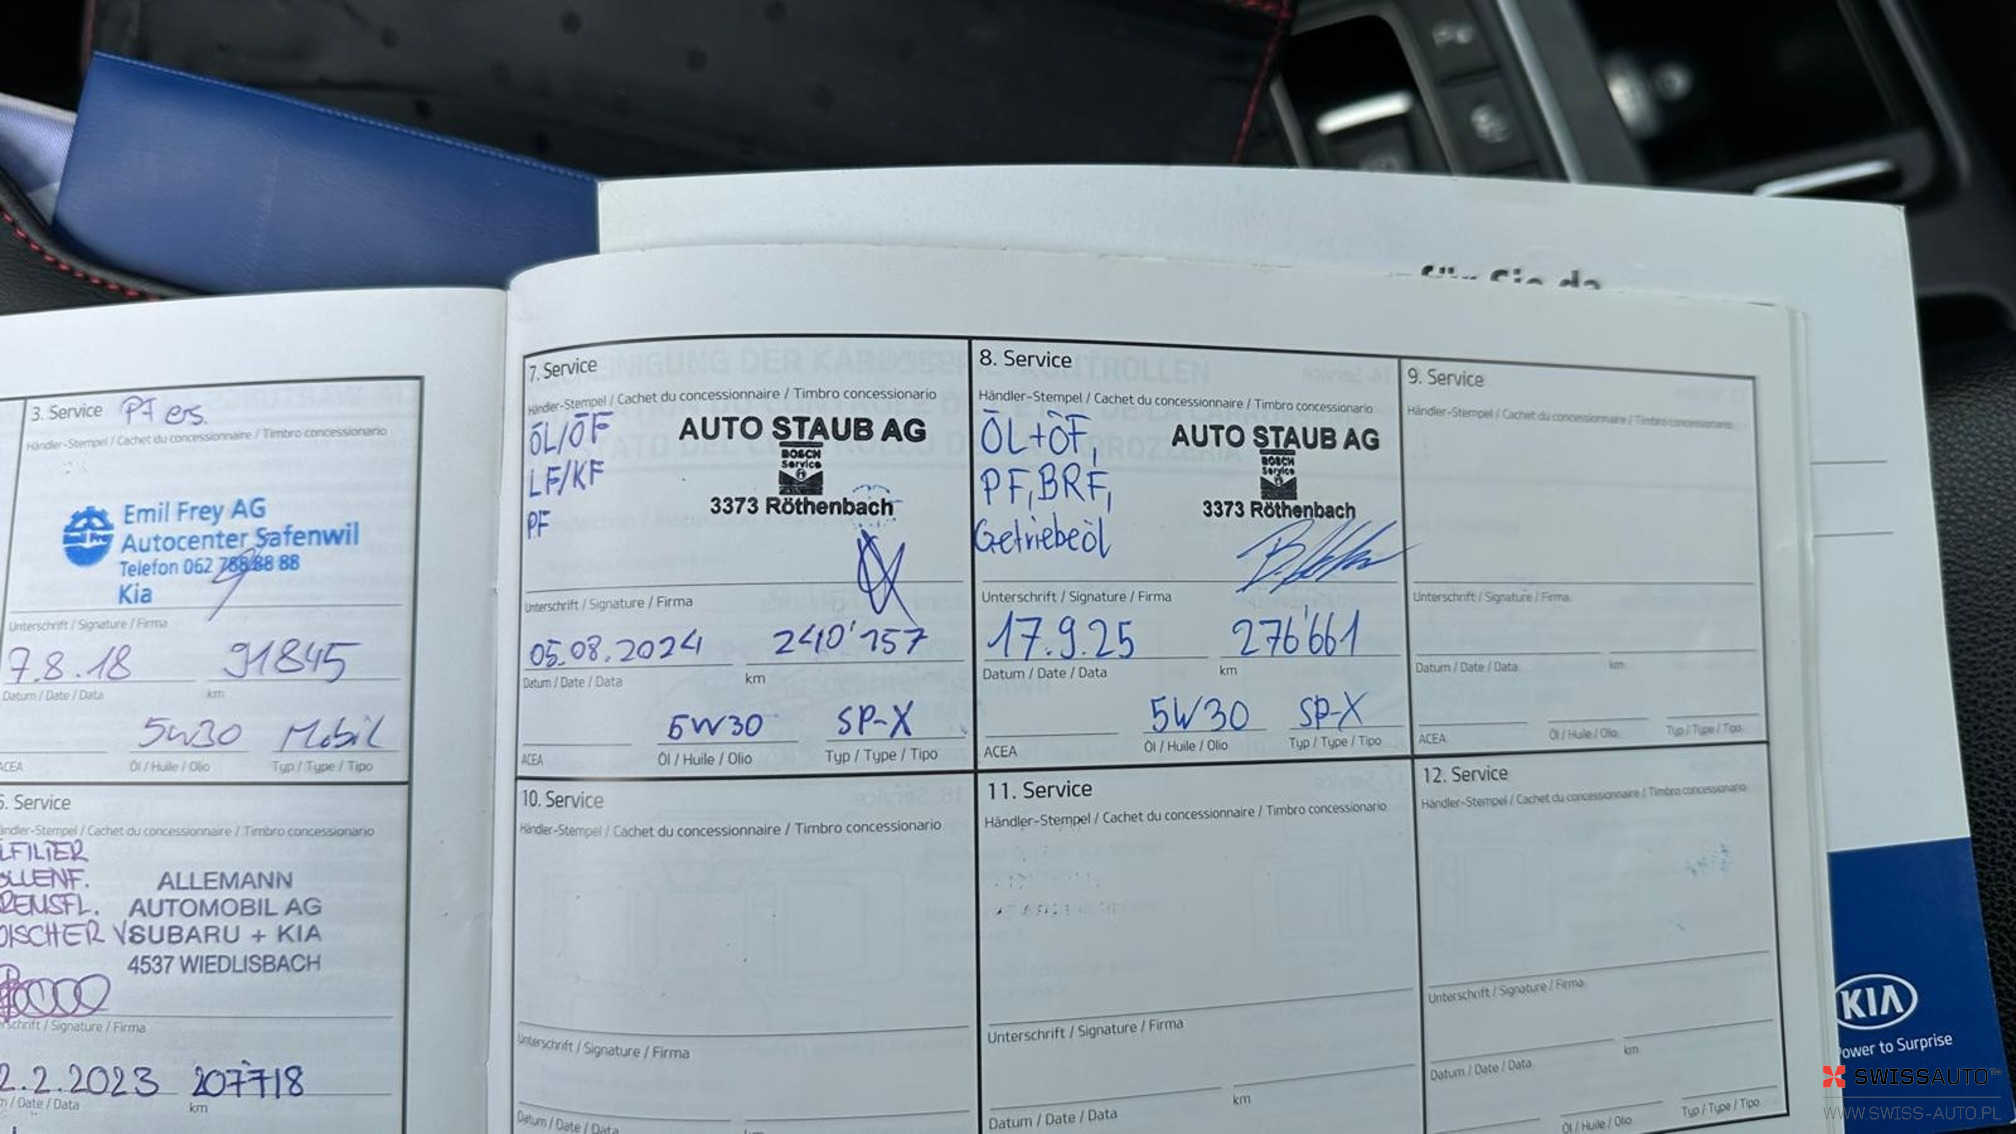 für Sie da
3. Service PF ers.
Händler-Stempel / Cachet du concessionnaire / Timbro concessionario
Emil Frey AG
Autocenter Safenwil
Telefon 062 788 88 88
Kia
Unterschrift / Signature / Firma
7.8.18 91845
Datum / Date / Data km
5W30 Mobil
ACEA Öl / Huile / Olio Typ / Type / Tipo
6. Service
Händler-Stempel / Cachet du concessionnaire / Timbro concessionario
LFILTER
OLLENF.
REMSFL.
ISCHER
ALLEMANN
AUTOMOBIL AG
SUBARU + KIA
4537 WIEDLISBACH
Unterschrift / Signature / Firma
2.2.2023 207718
Datum / Date / Data km
7. Service
Händler-Stempel / Cachet du concessionnaire / Timbro concessionario
ÖL/ÖF
LF/KF
PF
AUTO STAUB AG
BOSCH
Service
3373 Röthenbach
Unterschrift / Signature / Firma
05.08.2024 240'157
Datum / Date / Data km
5W30 SP-X
ACEA Öl / Huile / Olio Typ / Type / Tipo
8. Service
Händler-Stempel / Cachet du concessionnaire / Timbro concessionario
ÖL+ÖF,
PF, BRF,
Getriebeöl
AUTO STAUB AG
BOSCH
Service
3373 Röthenbach
Unterschrift / Signature / Firma
17.9.25 276'661
Datum / Date / Data km
5W30 SP-X
ACEA Öl / Huile / Olio Typ / Type / Tipo
9. Service
Händler-Stempel / Cachet du concessionnaire / Timbro concessionario
Unterschrift / Signature / Firma
Datum / Date / Data km
ACEA Öl / Huile / Olio Typ / Type / Tipo
10. Service
Händler-Stempel / Cachet du concessionnaire / Timbro concessionario
Unterschrift / Signature / Firma
Datum / Date / Data km
11. Service
Händler-Stempel / Cachet du concessionnaire / Timbro concessionario
Unterschrift / Signature / Firma
Datum / Date / Data km
12. Service
Händler-Stempel / Cachet du concessionnaire / Timbro concessionario
Unterschrift / Signature / Firma
Datum / Date / Data km
Öl / Huile / Olio Typ / Type / Tipo
KIA
Power to Surprise
SWISSAUTO™
WWW.SWISS-AUTO.PL